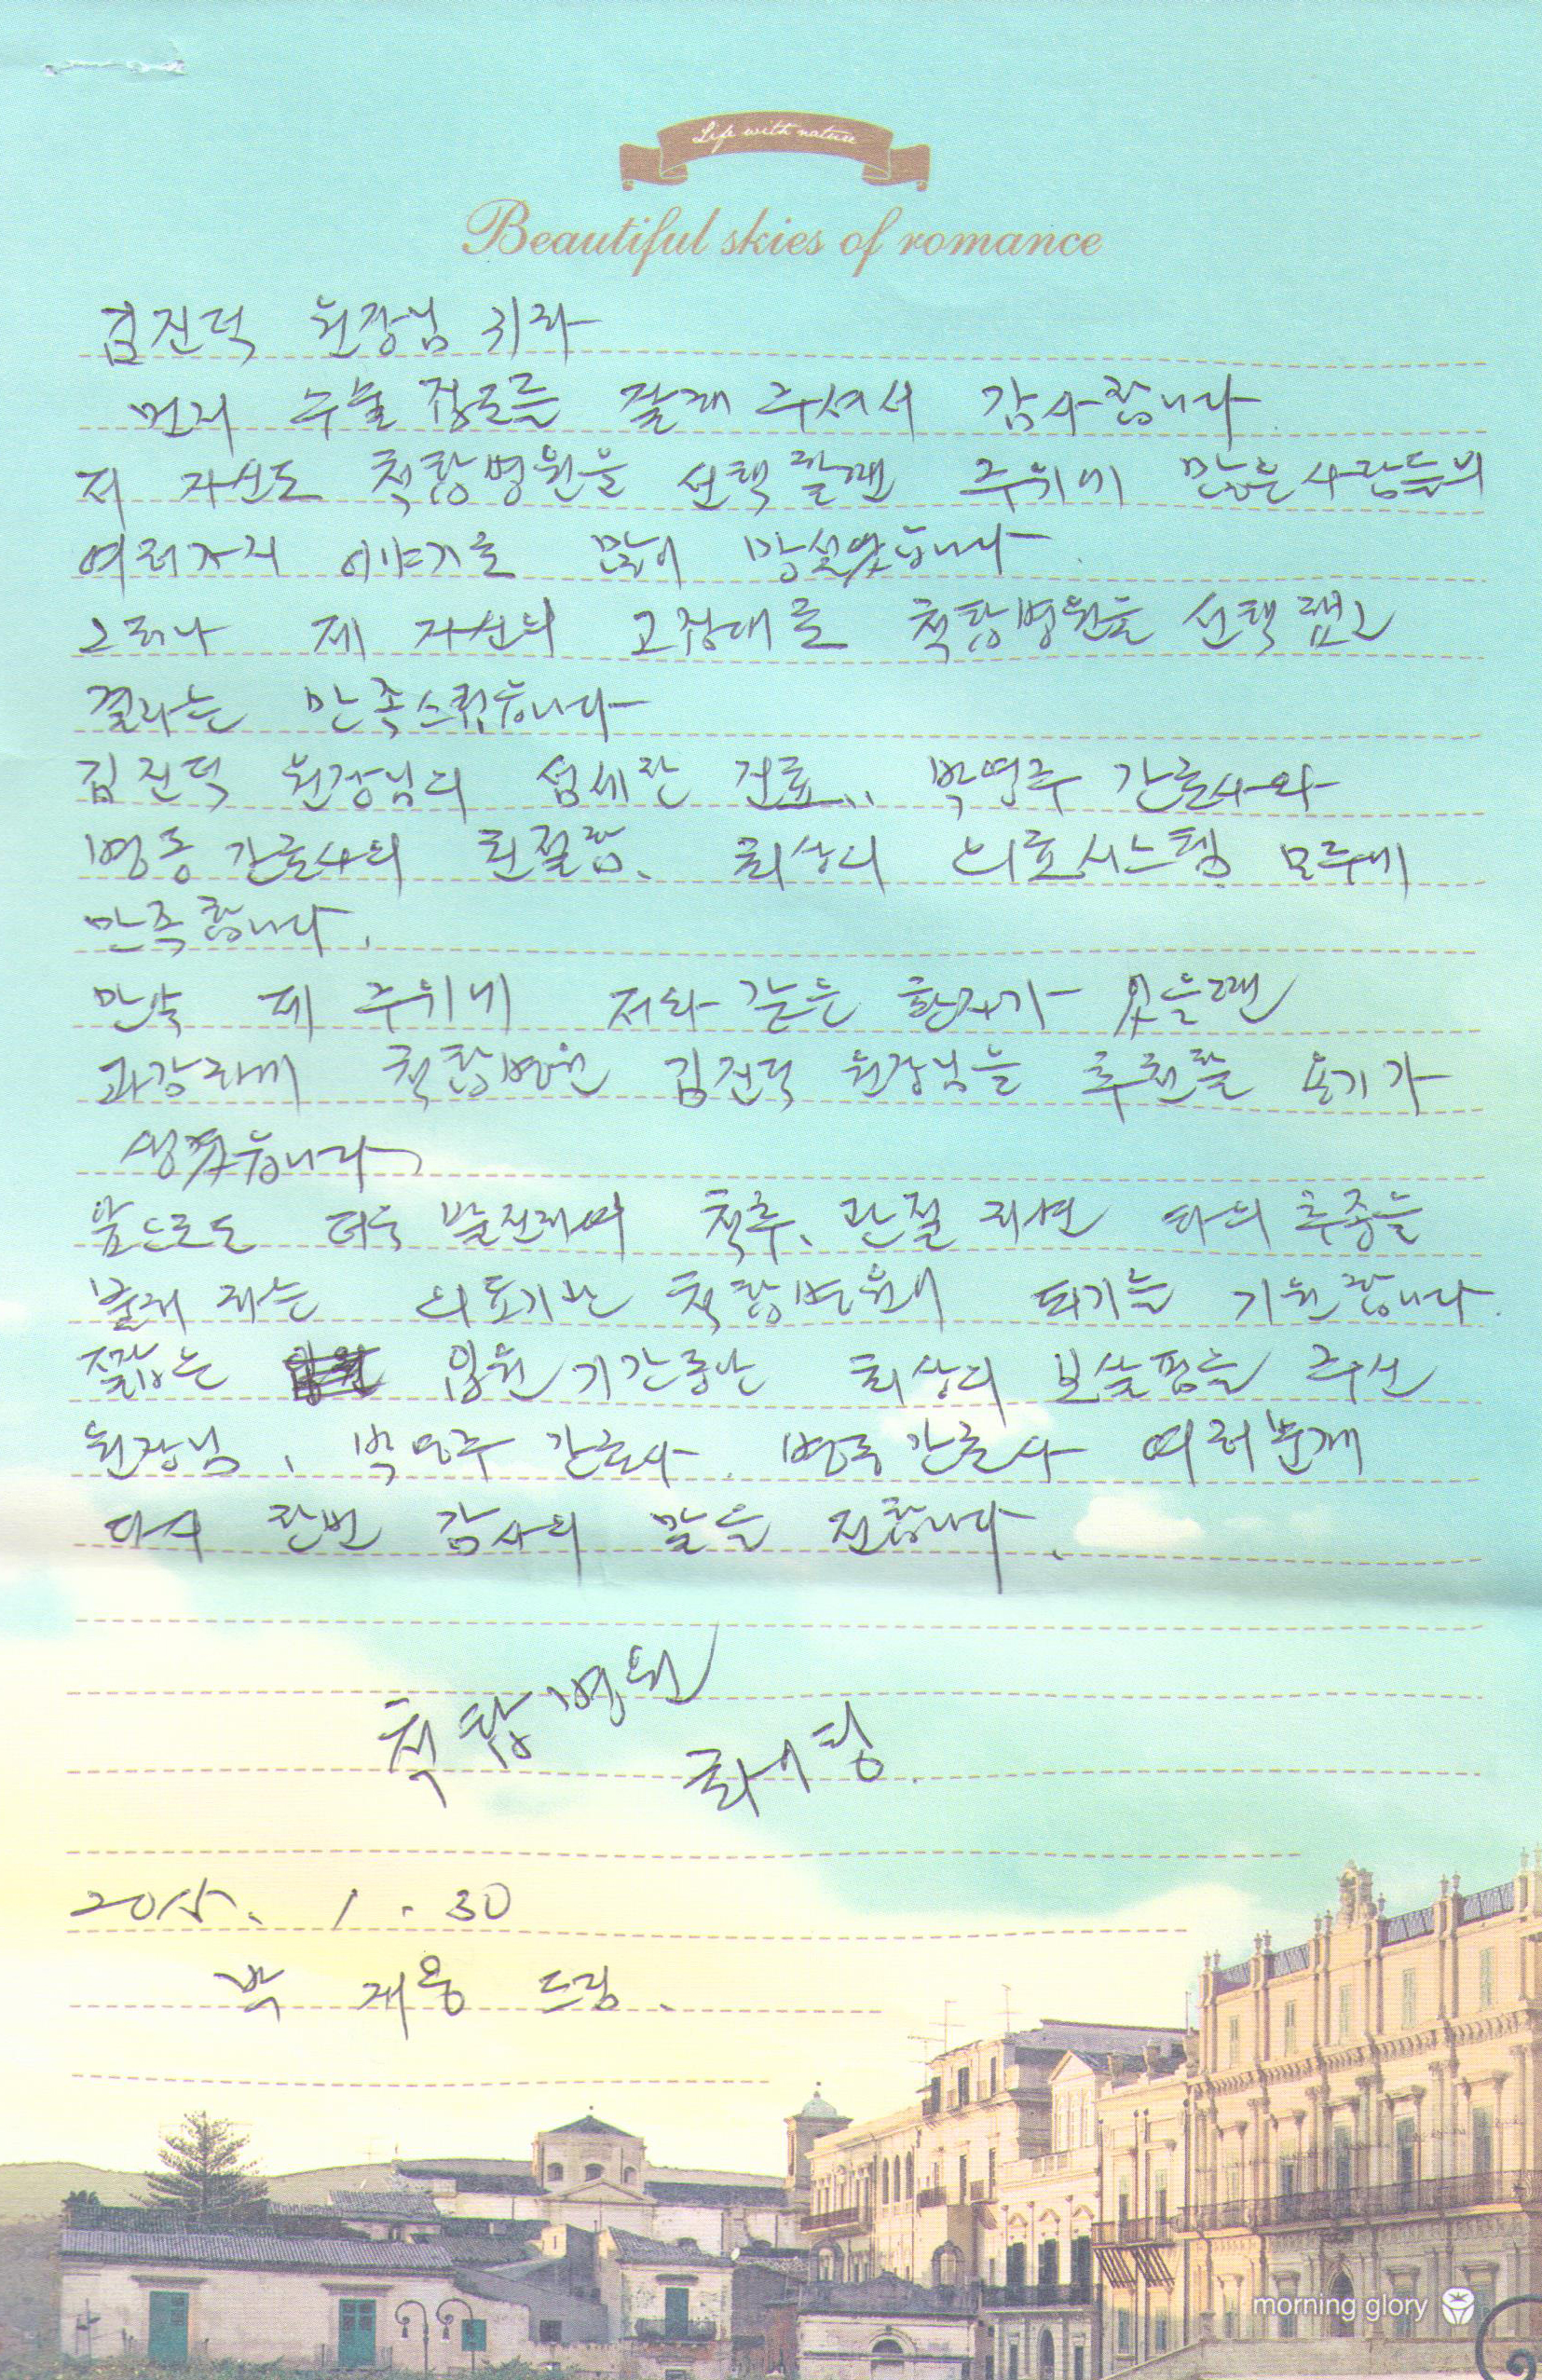 Life with nature
Beautiful skies of romance
김진덕 원장님 귀하
먼저 수술 집도를 잘해 주셔서 감사합니다
저 자신도 척탑병원을 선택할땐 주위에 많은 사람들의
여러가지 이야기로 많이 망설였습니다
그러나 제 자신의 고집대로 척탑병원을 선택했고
결과는 만족스럽습니다
김진덕 원장님의 섬세한 진료.. 박영주 간호사와
병동 간호사의 친절함. 최상의 의료시스템 모두에
만족합니다.
만약 제 주위에 저와 같은 환자가 있을땐
과감하게 척탑병원 김진덕 원장님을 추천할 용기가
생겼습니다
앞으로도 더욱 발전하여 척추、관절 하면 타의 추종을
불허 하는 의료기관 척탑병원이 되기를 기원합니다.
짧은 입원기간동안 최상의 보살핌을 주신
원장님、박영주 간호사. 병동간호사 여러분께
다시 한번 감사의 말을 전합니다.
척탑병원
화이팅.
2015. 1. 30
박 계용 드림.
morning glory